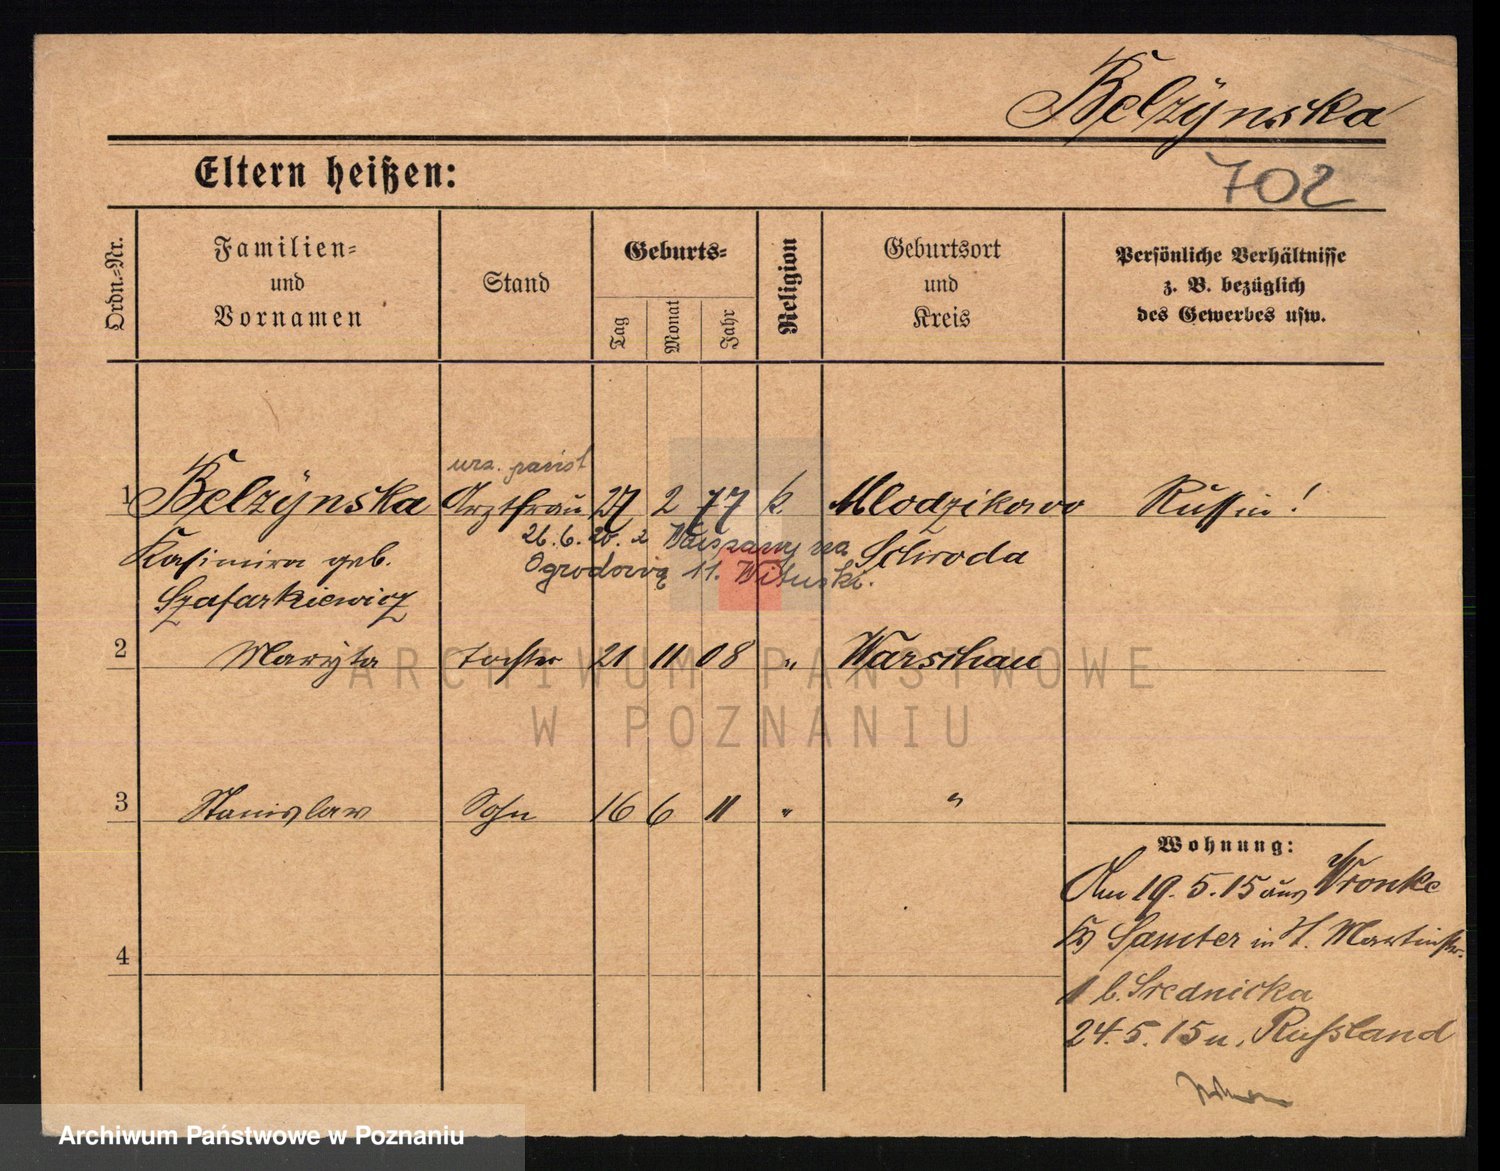 Belzÿnska
702
Eltern heißen:
Ordn.-Nr.
Familien-
und
Vornamen
Stand
Geburts-
Tag
Monat
Jahr
Religion
Geburtsort
und
Kreis
Persönliche Verhältnisse
z. B. bezüglich
des Gewerbes usw.
urz. państ
1 Belzÿnska Arztfrau 27 2 77 k. Mlodzikowo Russin!
26.6.20. z Warszawy na
Kasimira geb. Schroda
Ogrodową 11. Wituski.
Szafarkiewicz
2 Marÿta Tochter 21 11 08 " Warschau
ARCHIWUM PAŃSTWOWE
W POZNANIU
3 Stanislaw Sohn 16 6 11 " "
Wohnung:
Am 19.5.15 aus Wronke
Kr Samter in H. Martinstr.
1 b. Srednicka
24.5.15 n. Russland
4
Archiwum Państwowe w Poznaniu